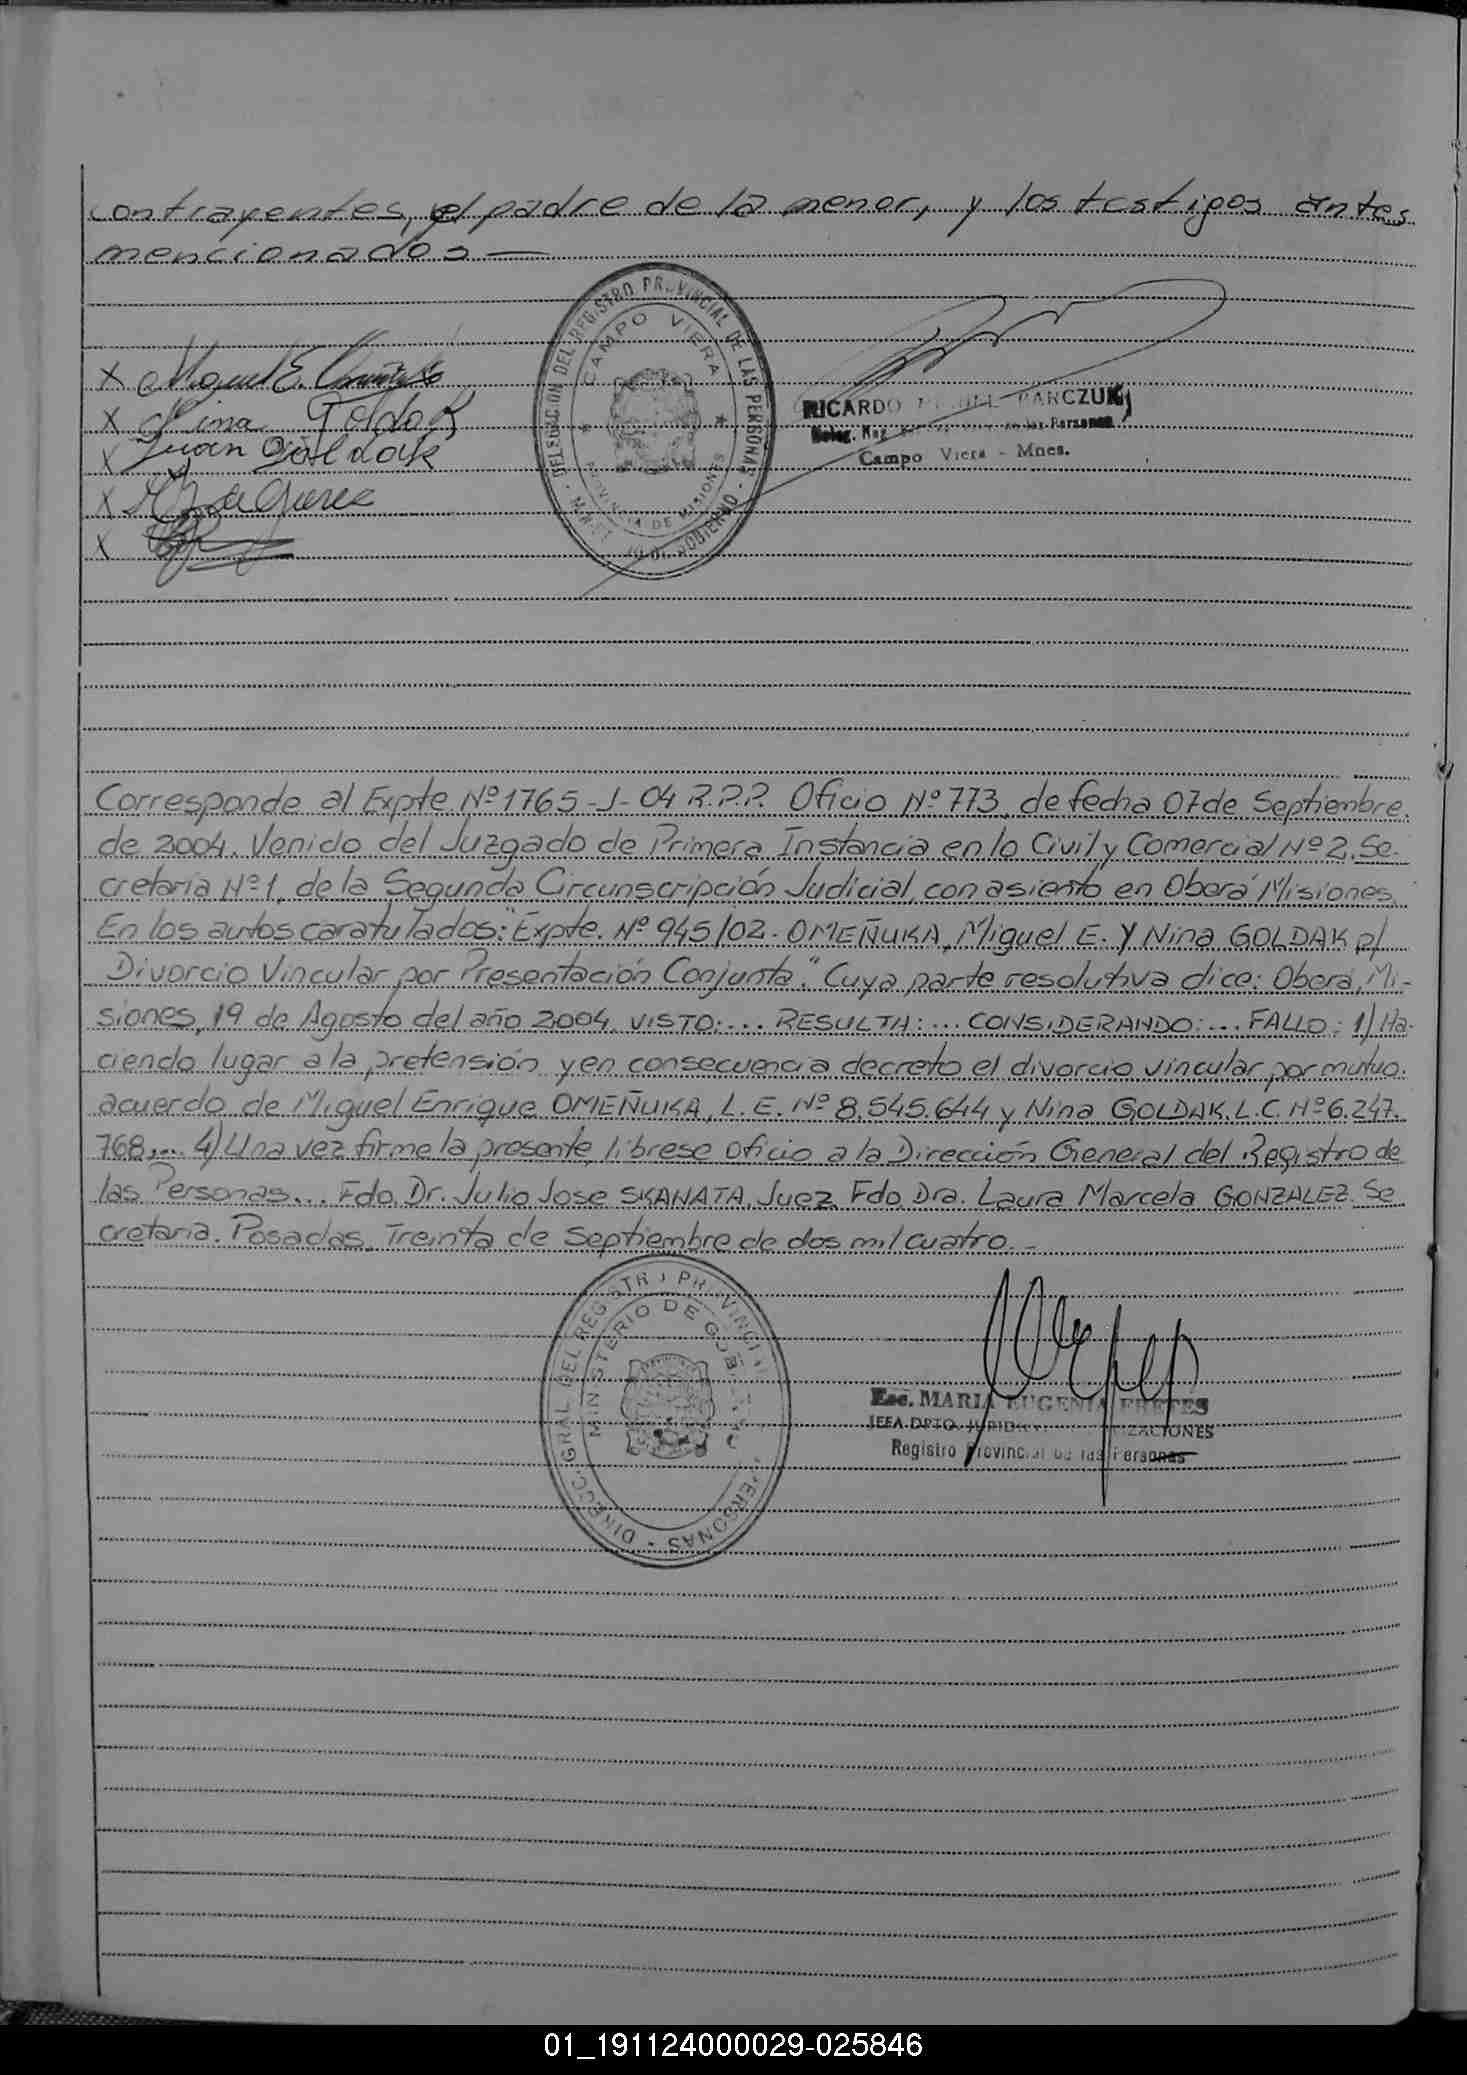 contrayentes, el padre de la menor, y los testigos antes
mencionados —
DELEGACION DEL REGISTRO PROVINCIAL DE LAS PERSONAS
CAMPO VIERA
PROVINCIA DE MISIONES
GOBIERNO
X Miguel E.
X Nina Goldak
X Juan Goldak
X
X
RICARDO PARCZUK
Campo Viera - Mnes.
Corresponde al Expte Nº 1765-J-04 R.P.P. Oficio Nº 773, de fecha 07 de Septiembre
de 2004. Venido del Juzgado de Primera Instancia en lo Civil y Comercial Nº 2, Se-
cretaría Nº 1, de la Segunda Circunscripción Judicial, con asiento en Oberá Misiones.
En los autos caratulados: "Expte. Nº 945/02 - OMEÑUKA, Miguel E. Y Nina GOLDAK p/
Divorcio Vincular por Presentación Conjunta." Cuya parte resolutiva dice: Oberá, Mi-
siones, 19 de Agosto del año 2004. VISTO:... RESULTA:... CONSIDERANDO:... FALLO: 1) Ha-
ciendo lugar a la pretensión y en consecuencia decreto el divorcio vincular por mutuo
acuerdo de Miguel Enrique OMEÑUKA, L.E. Nº 8.545.644 y Nina GOLDAK, L.C. Nº 6.247.
768,... 4) Una vez firme la presente, líbrese oficio a la Dirección General del Registro de
las Personas... Fdo. Dr. Julio Jose SKANATA, Juez. Fdo. Dra. Laura Marcela GONZALEZ. Se
cretaria. Posadas, Treinta de Septiembre de dos mil cuatro.-
DIRECC. GRAL. DEL REGISTRO PROVINCIAL PERSONAS
MINISTERIO DE GOBIERNO
Esc. MARIA EUGENIA FRETES
JEFA DPTO.
Registro Provincial de las Personas
01_191124000029-025846